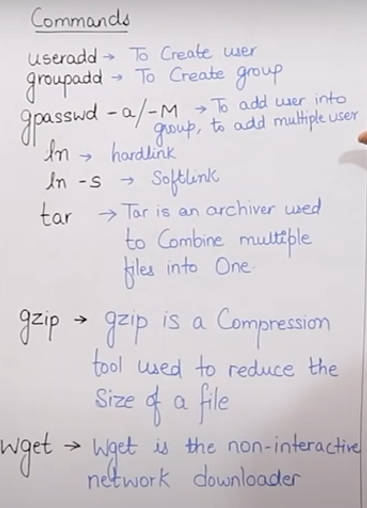 Commands
useradd → To Create user
groupadd → To Create group
gpasswd -a/-M → To add user into
group, to add multiple user
ln → hardlink
ln -s → Softlink
tar → Tar is an archiver used
to Combine multiple
files into One.
gzip → gzip is a Compression
tool used to reduce the
Size of a file
wget → Wget is the non-interactive
network downloader